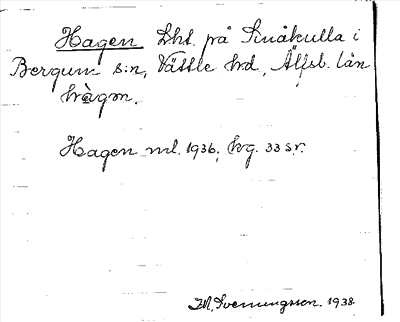 Hagen Lht. på Småkulla i
Bergum s:n, Vättle hd, Älfsb. län
hàgɷn.
Hagen ml. 1936, hg. 33 s r.
M. Svenungsson. 1938.